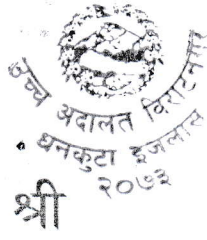 उच्च अदालत विराटनगर
धनकुटा इजलास
२०७३
श्री